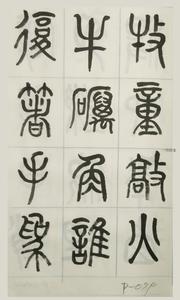 牧童敲火
牛礪角誰
復箸手爲
P-094